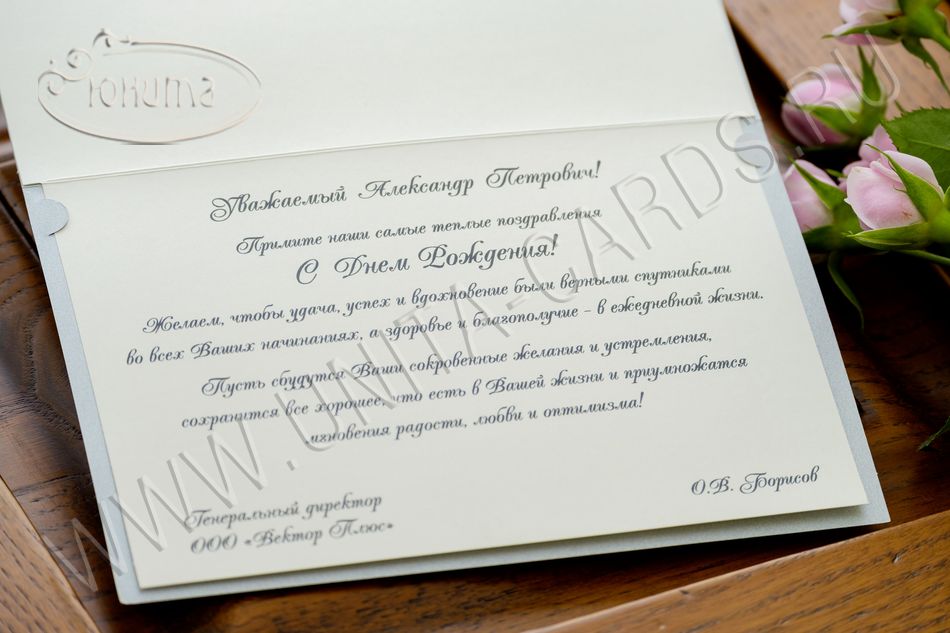 Юнита
Уважаемый Александр Петрович!
Примите наши самые теплые поздравления
С Днем Рождения!
Желаем, чтобы удача, успех и вдохновение были верными спутниками
во всех Ваших начинаниях, а здоровье и благополучие - в ежедневной жизни.
Пусть сбудутся Ваши сокровенные желания и устремления,
сохранится все хорошее, что есть в Вашей жизни и приумножатся
мгновения радости, любви и оптимизма!
Генеральный директор
ООО «Вектор Плюс»
О.В. Борисов
WWW.UNITA-CARDS.RU